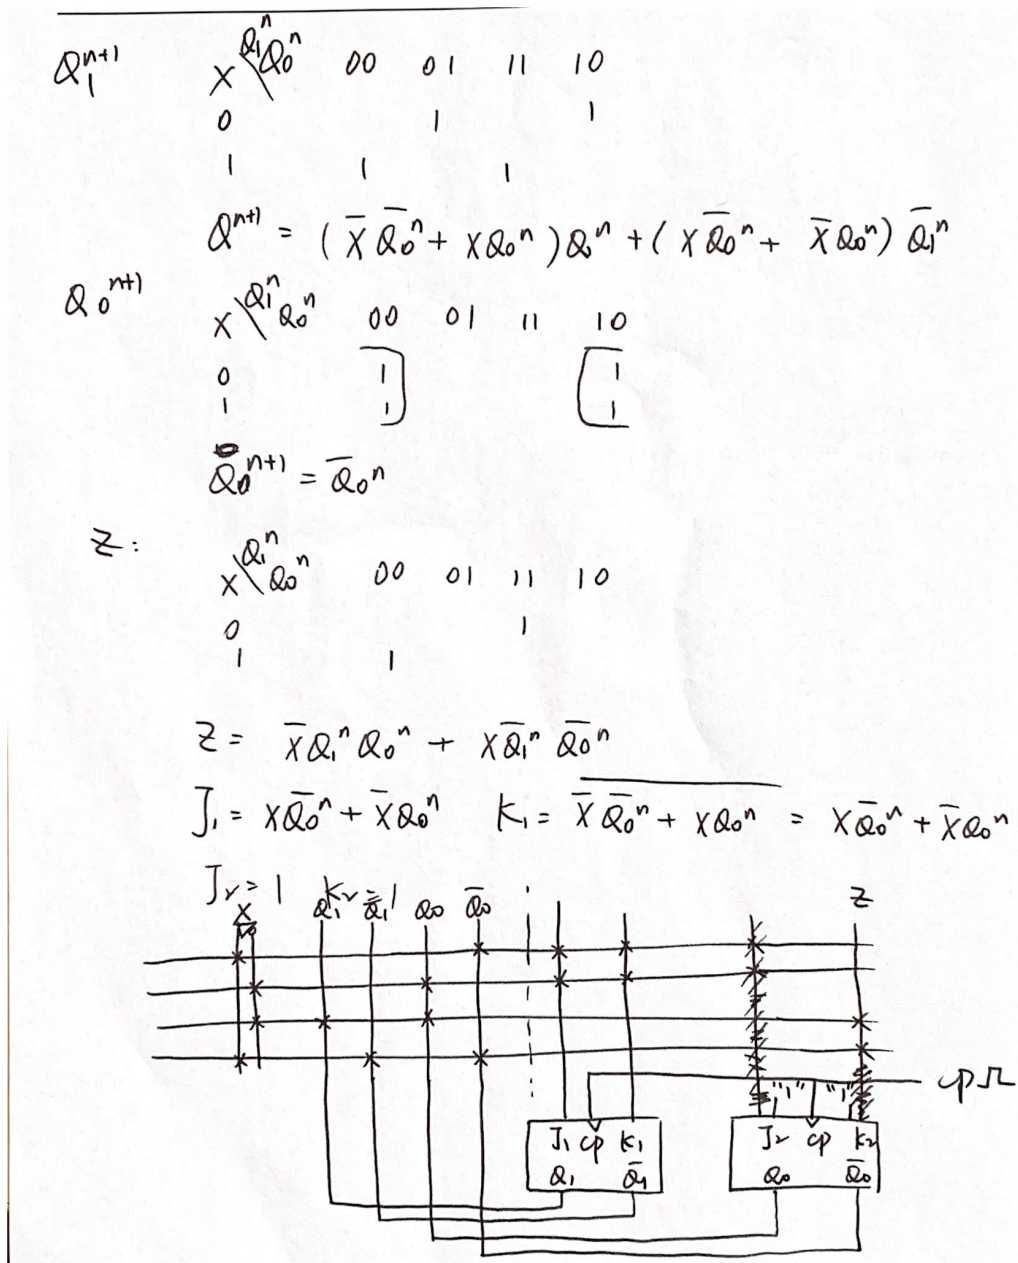 Q₁ⁿ⁺¹ X\Q₁ⁿQ₀ⁿ 00 01 11 10
0 1 1
1 1 1
Qⁿ⁺¹ = (X̅ Q̅₀ⁿ + XQ₀ⁿ)Q₁ⁿ + (XQ̅₀ⁿ + X̅Q₀ⁿ) Q̅₁ⁿ
Q₀ⁿ⁺¹ X\Q₁ⁿQ₀ⁿ 00 01 11 10
0 1 1
1 1 1
Q₀ⁿ⁺¹ = Q̅₀ⁿ
Z: X\Q₁ⁿQ₀ⁿ 00 01 11 10
0 1
1 1
Z = X̅Q₁ⁿQ₀ⁿ + XQ̅₁ⁿ Q̅₀ⁿ
J₁ = XQ̅₀ⁿ + X̅Q₀ⁿ K₁ = \overline{X̅Q̅₀ⁿ + XQ₀ⁿ} = XQ̅₀ⁿ + X̅Q₀ⁿ
J₂ = 1 K₂ = 1
X Q₁ Q̅₁ Q₀ Q̅₀ Z
cp
"1" "1"
J₁ cp K₁ J₂ cp K₂
Q₁ Q̅₁ Q₀ Q̅₀